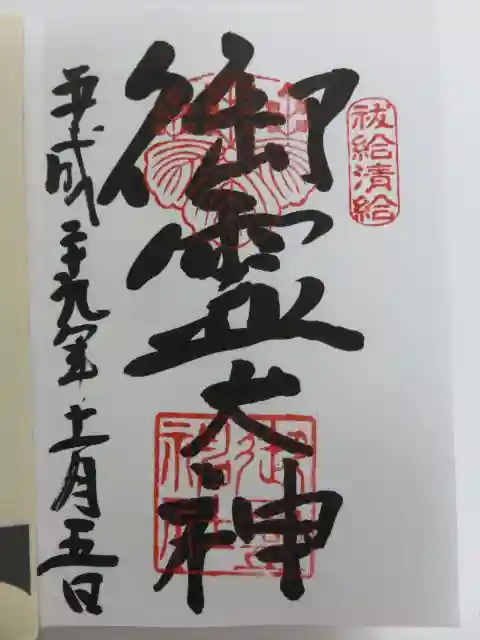 祓給清給
御霊大神
平成二十九年十一月五日
御霊神社